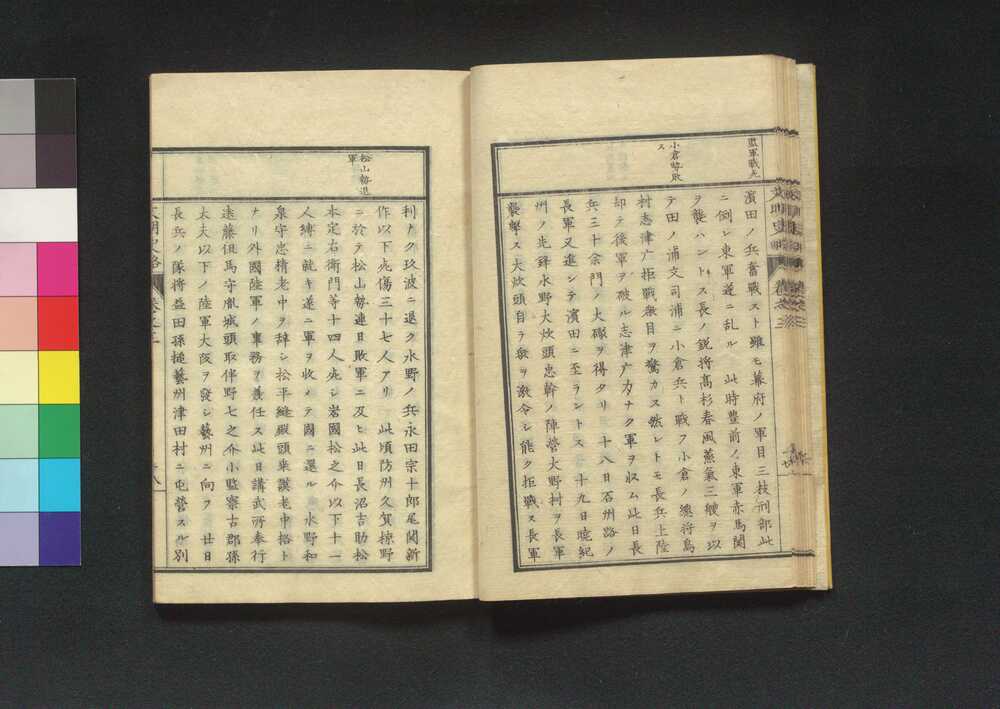 監軍戰死
小倉勢敗
ス
濱田ノ兵奮戰スト雖モ幕府ノ軍目三枝刑部此
ニ倒レ東軍遂ニ乱ル 此時豊前ノ東軍赤馬関
ヲ襲ハントス長ノ鋭将髙杉春風蒸氣三艘ヲ以
テ田ノ浦文司浦ニ小倉兵ト戰フ小倉ノ總将島
村志津广拒戰衆目ヲ驚カス然レトモ長兵上陸
却テ後軍ヲ破ル志津广力ナク軍ヲ収ム此日長
兵三十余門ノ大礟ヲ得タリ 十八日石州路ノ
長軍又進シテ濱田ニ至ラントス 十九日曉紀
州ノ先鋒水野大炊頭忠幹ノ陣營大野村ヲ長軍
襲撃ス大炊頭自ラ衆ヲ激令シ能ク拒戰ス長軍
松山勢退
軍
利ナク玖波ニ退ク水野ノ兵永田宗十郎尾関新
作以下死傷三十七人アリ 此頃防州久賀椋野
ニ於テ松山勢連日敗軍ニ及ヒ此日長沼吉助松
本定右衛門等十四人死シ岩國松之介以下十一
人縛ニ就キ遂ニ軍ヲ收メテ國ニ還ル 水野和
泉守忠精老中ヲ辞シ松平縫殿頭乗謨老中格ト
ナリ外國陸軍ノ事務ヲ兼任ス此日講武所奉行
遠藤但馬守胤城頭取伴野七之介小監察古郡孫
太夫以下ノ陸軍大阪ヲ發シ藝州ニ向フ 廿日
長兵ノ隊将益田孫槌藝州津田村ニ屯營スル別